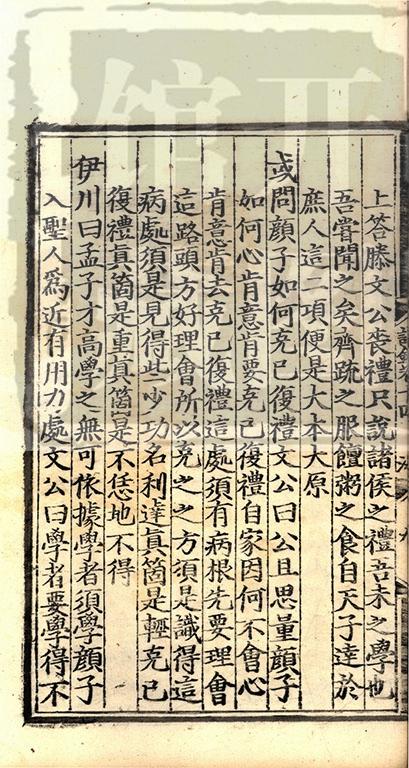 上答滕文公喪禮只說諸侯之禮吾未之學也
吾嘗聞之矣齊疏之服饘粥之食自天子達於
庶人這二項便是大本大原
或問顏子如何克己復禮文公曰公且思量顏子
如何心肯意肯要克己復禮自家因何不會心
肯意肯去克己復禮這處須有病根先要理會
這路頭方好理會所以克之之方須是識得這
病處須是見得些少功名利達眞箇是輕克己
復禮眞箇是重眞箇是不恁地不得
伊川曰孟子才高學之無可依據學者須學顏子
入聖人爲近有用力處文公曰學者要學得不